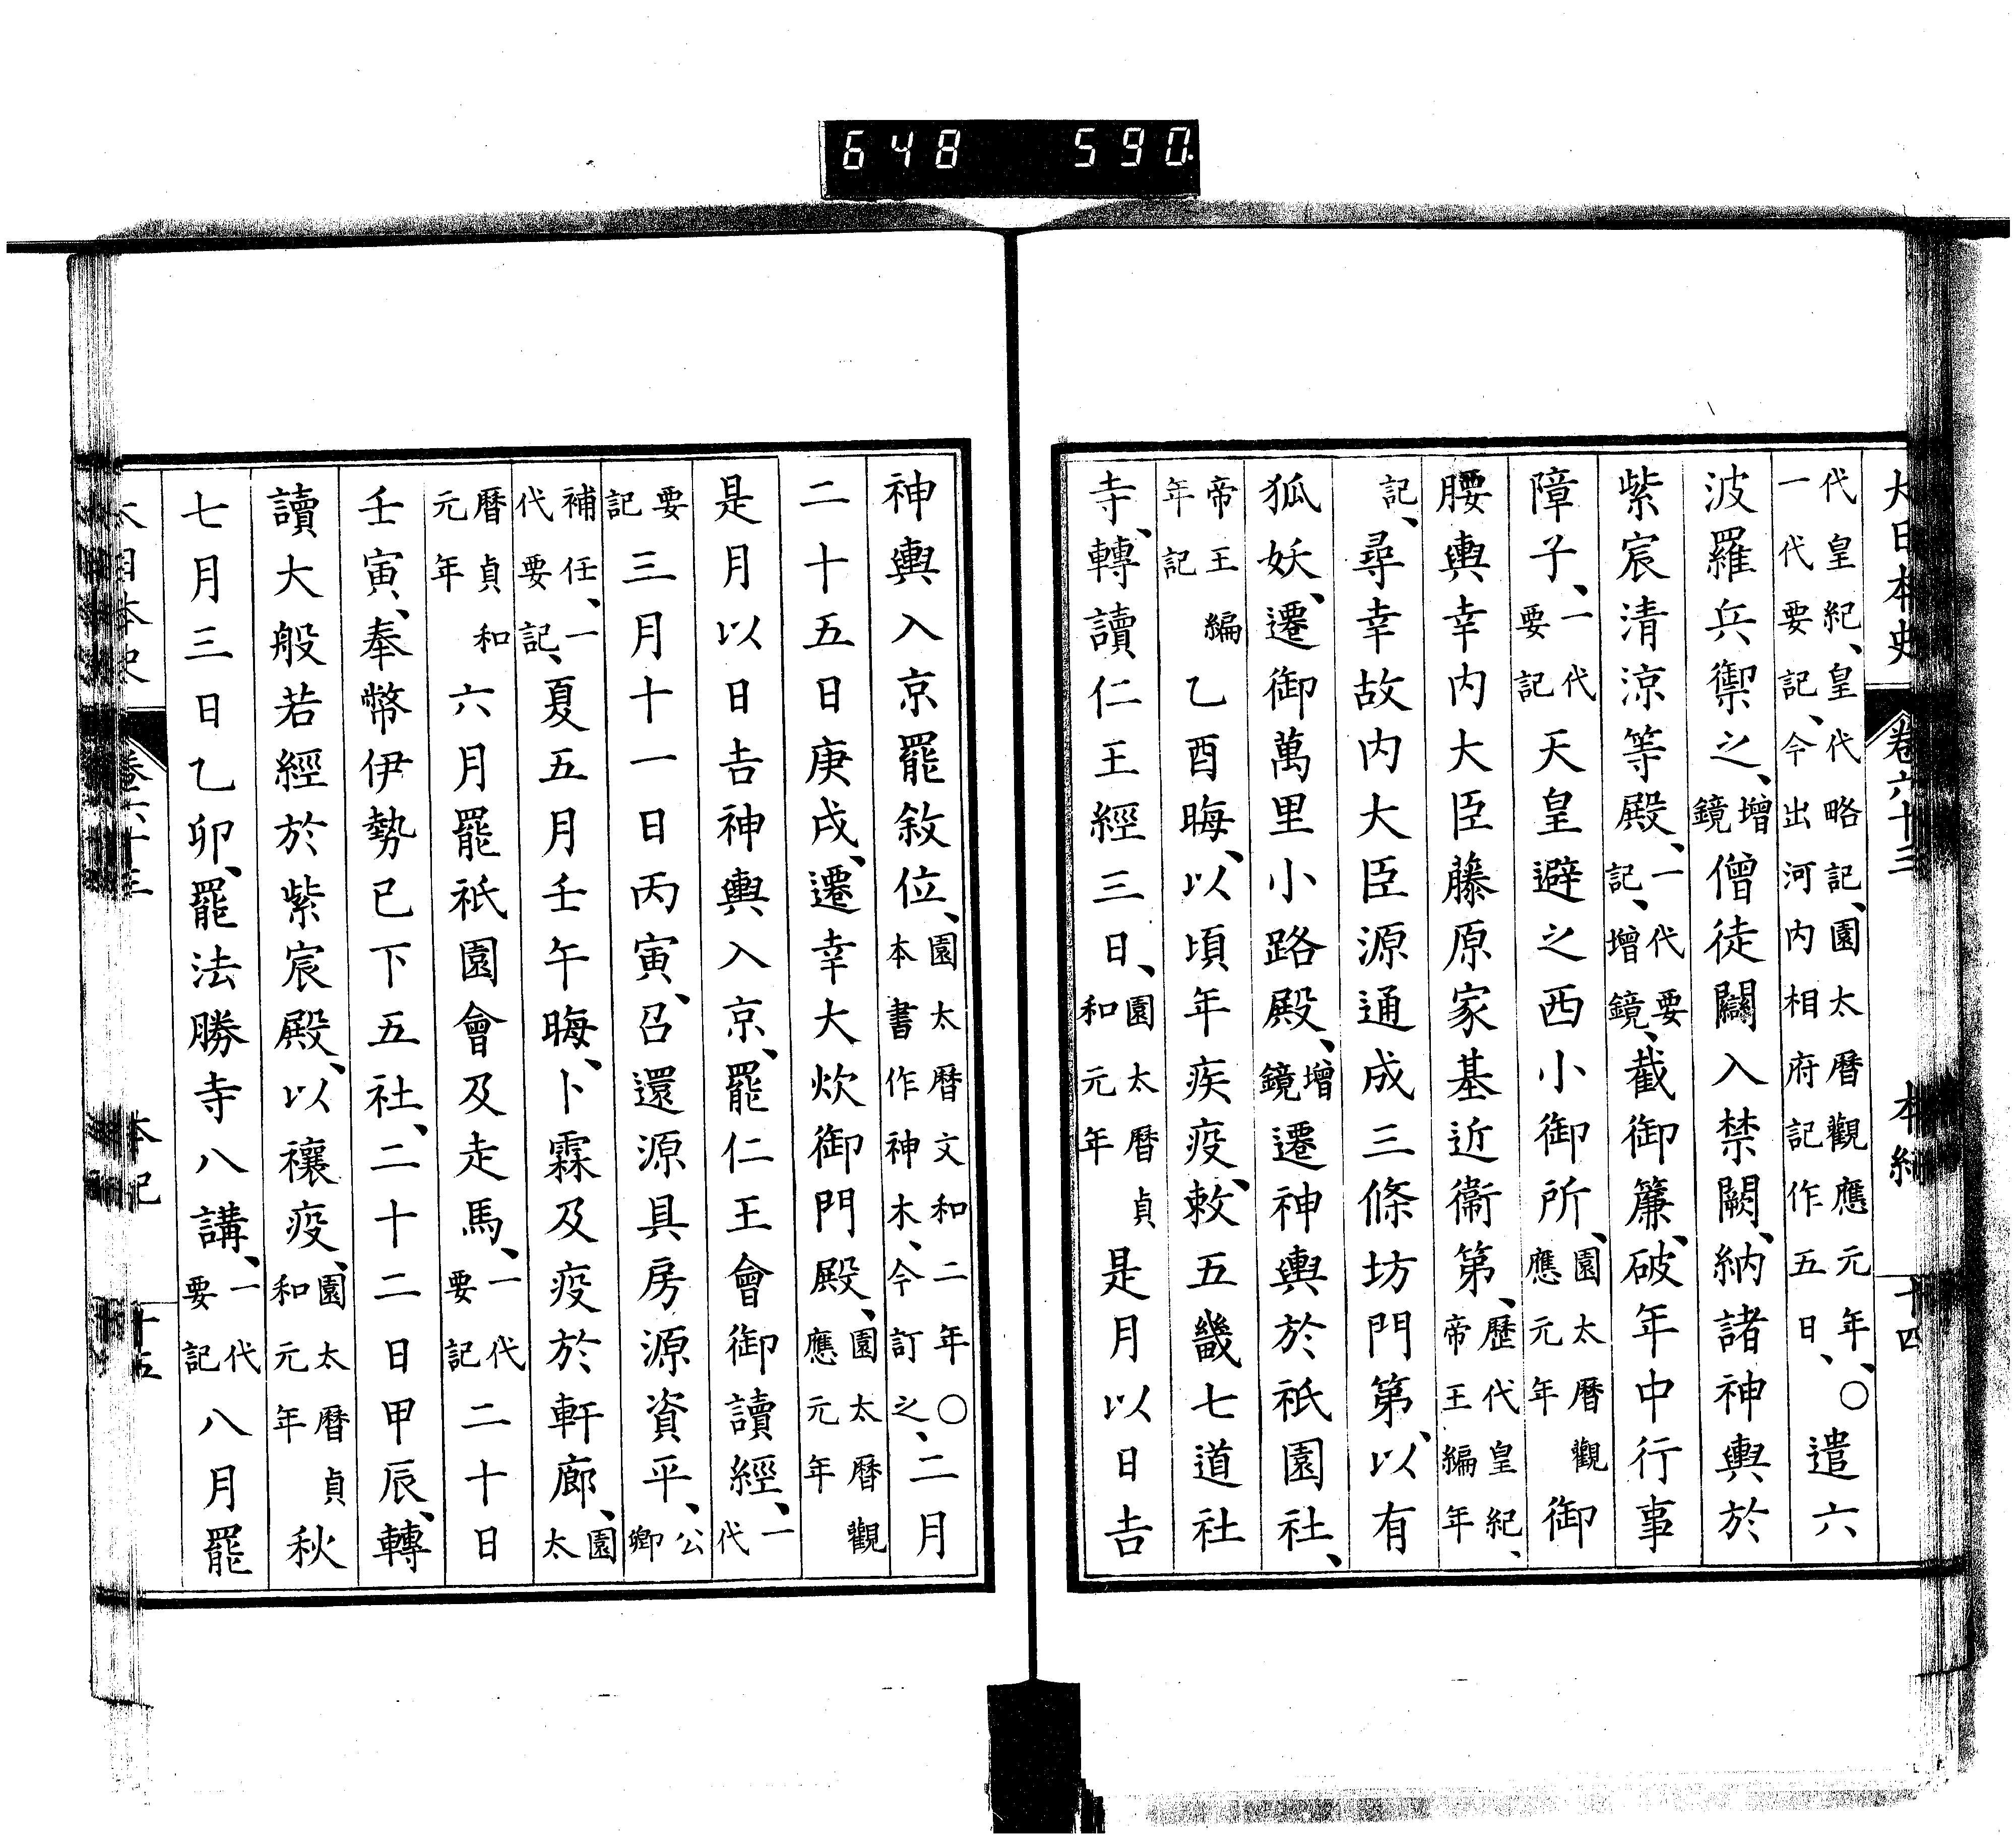 六48 590.
大日本史 卷六十三 本紀 十四
代皇紀、皇代略記、園太曆觀應元年、〇一代要記、今出河內相府記作五日、遣六
波羅兵禦之、增鏡僧徒闖入禁闕、納諸神輿於
紫宸清涼等殿、一代要記、增鏡、截御簾、破年中行事
障子、一代要記天皇避之西小御所、園太曆觀應元年御
腰輿幸內大臣藤原家基近衞第、歷代皇紀、帝王編年
記、尋幸故內大臣源通成三條坊門第、以有
狐妖、遷御萬里小路殿、增鏡遷神輿於祇園社、
帝王編年記乙酉晦、以頃年疾疫、敕五畿七道社
寺、轉讀仁王經三日、園太曆貞和元年是月以日吉
神輿入京罷敘位、園太曆文和二年〇本書作神木、今訂之、二月
二十五日庚戌、遷幸大炊御門殿、園太曆觀應元年
是月以日吉神輿入京、罷仁王會御讀經、一代
要記三月十一日丙寅、召還源具房源資平、公卿
補任、一代要記、夏五月壬午晦、卜霖及疫於軒廊、園太
曆貞和元年六月罷祇園會及走馬、一代要記二十日
壬寅、奉幣伊勢已下五社、二十二日甲辰、轉
讀大般若經於紫宸殿、以禳疫、園太曆貞和元年秋
七月三日乙卯、罷法勝寺八講、一代要記八月罷
大日本史 卷六十三 本紀 十五